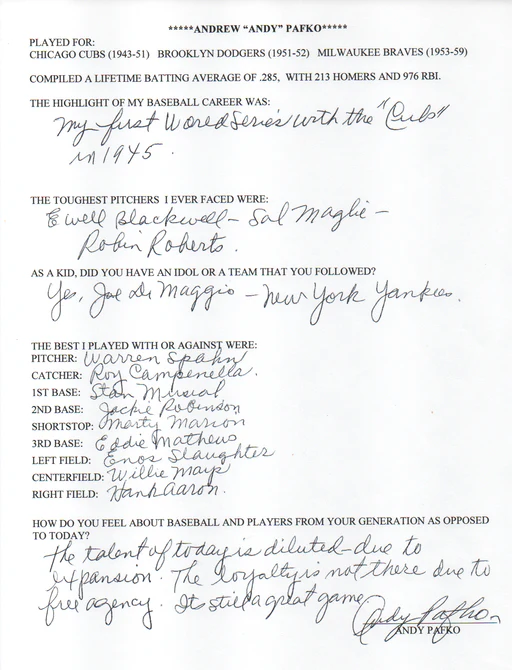 *****ANDREW “ANDY” PAFKO*****
PLAYED FOR:
CHICAGO CUBS (1943-51) BROOKLYN DODGERS (1951-52) MILWAUKEE BRAVES (1953-59)
COMPILED A LIFETIME BATTING AVERAGE OF .285, WITH 213 HOMERS AND 976 RBI.
THE HIGHLIGHT OF MY BASEBALL CAREER WAS:
My first World Series with the "Cubs"
in 1945.
THE TOUGHEST PITCHERS I EVER FACED WERE:
Ewell Blackwell – Sal Maglie –
Robin Roberts.
AS A KID, DID YOU HAVE AN IDOL OR A TEAM THAT YOU FOLLOWED?
Yes, Joe Di Maggio – New York Yankees.
THE BEST I PLAYED WITH OR AGAINST WERE:
PITCHER: Warren Spahn
CATCHER: Roy Campenella.
1ST BASE: Stan Musial
2ND BASE: Jackie Robinson
SHORTSTOP: Marty Marion
3RD BASE: Eddie Mathews
LEFT FIELD: Enos Slaughter
CENTERFIELD: Willie Mays
RIGHT FIELD: Hank Aaron.
HOW DO YOU FEEL ABOUT BASEBALL AND PLAYERS FROM YOUR GENERATION AS OPPOSED
TO TODAY?
The talent of today is diluted – due to
expansion. The loyalty is not there due to
free agency. Its still a great game
Andy Pafko
ANDY PAFKO